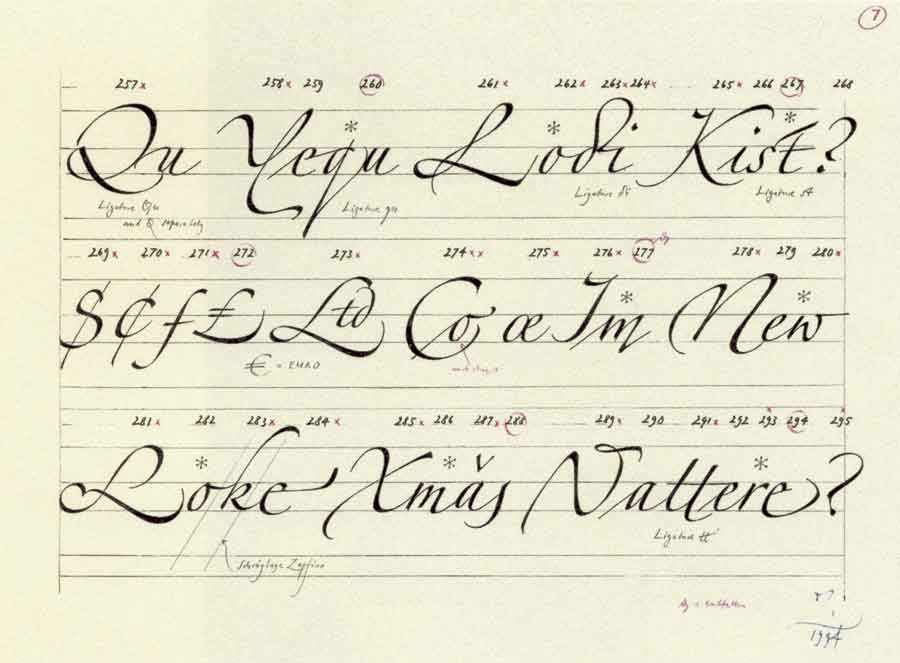 7
257x 258x 259 260 261x 262x 263x 264x 265x 266 267 268
Qu Yequ Lodi Kist?
Ligature Qu Ligature qu Ligature di Ligature st
and Q separately
269x 270x 271x 272 273x 274xx 275x 276x 277 278x 279 280x
$ ¢ ƒ £ Ltd Co œ Im New
€ = EURO
281x 282 283x 284x 285x 286 287x 288 289x 290 291x 292 293 294 295
Loke Xmăs Vattere?
Ligature tt
Schräglage Zapfino
1994